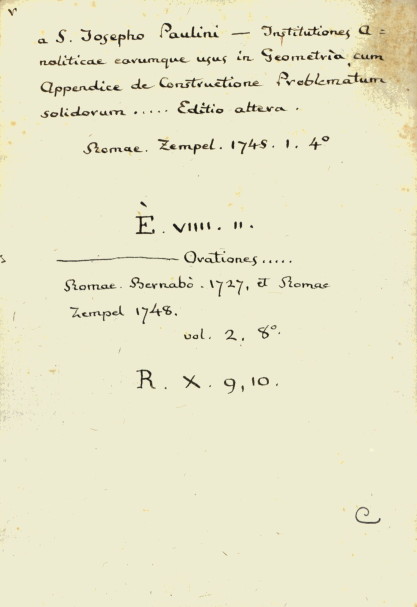 v
a S. Josepho Paulini — Institutiones A =
noliticae earumque usus in Geometria, cum
Appendice de Constructione Problematum
solidorum ..... Editio altera.
Romae. Zempel. 1745. 1. 4°
È. VIIII. II.
——— Orationes .....
Romae. Bernabò. 1727, et Romae
Zempel 1748.
vol. 2. 8°.
R. X. 9, 10.
C